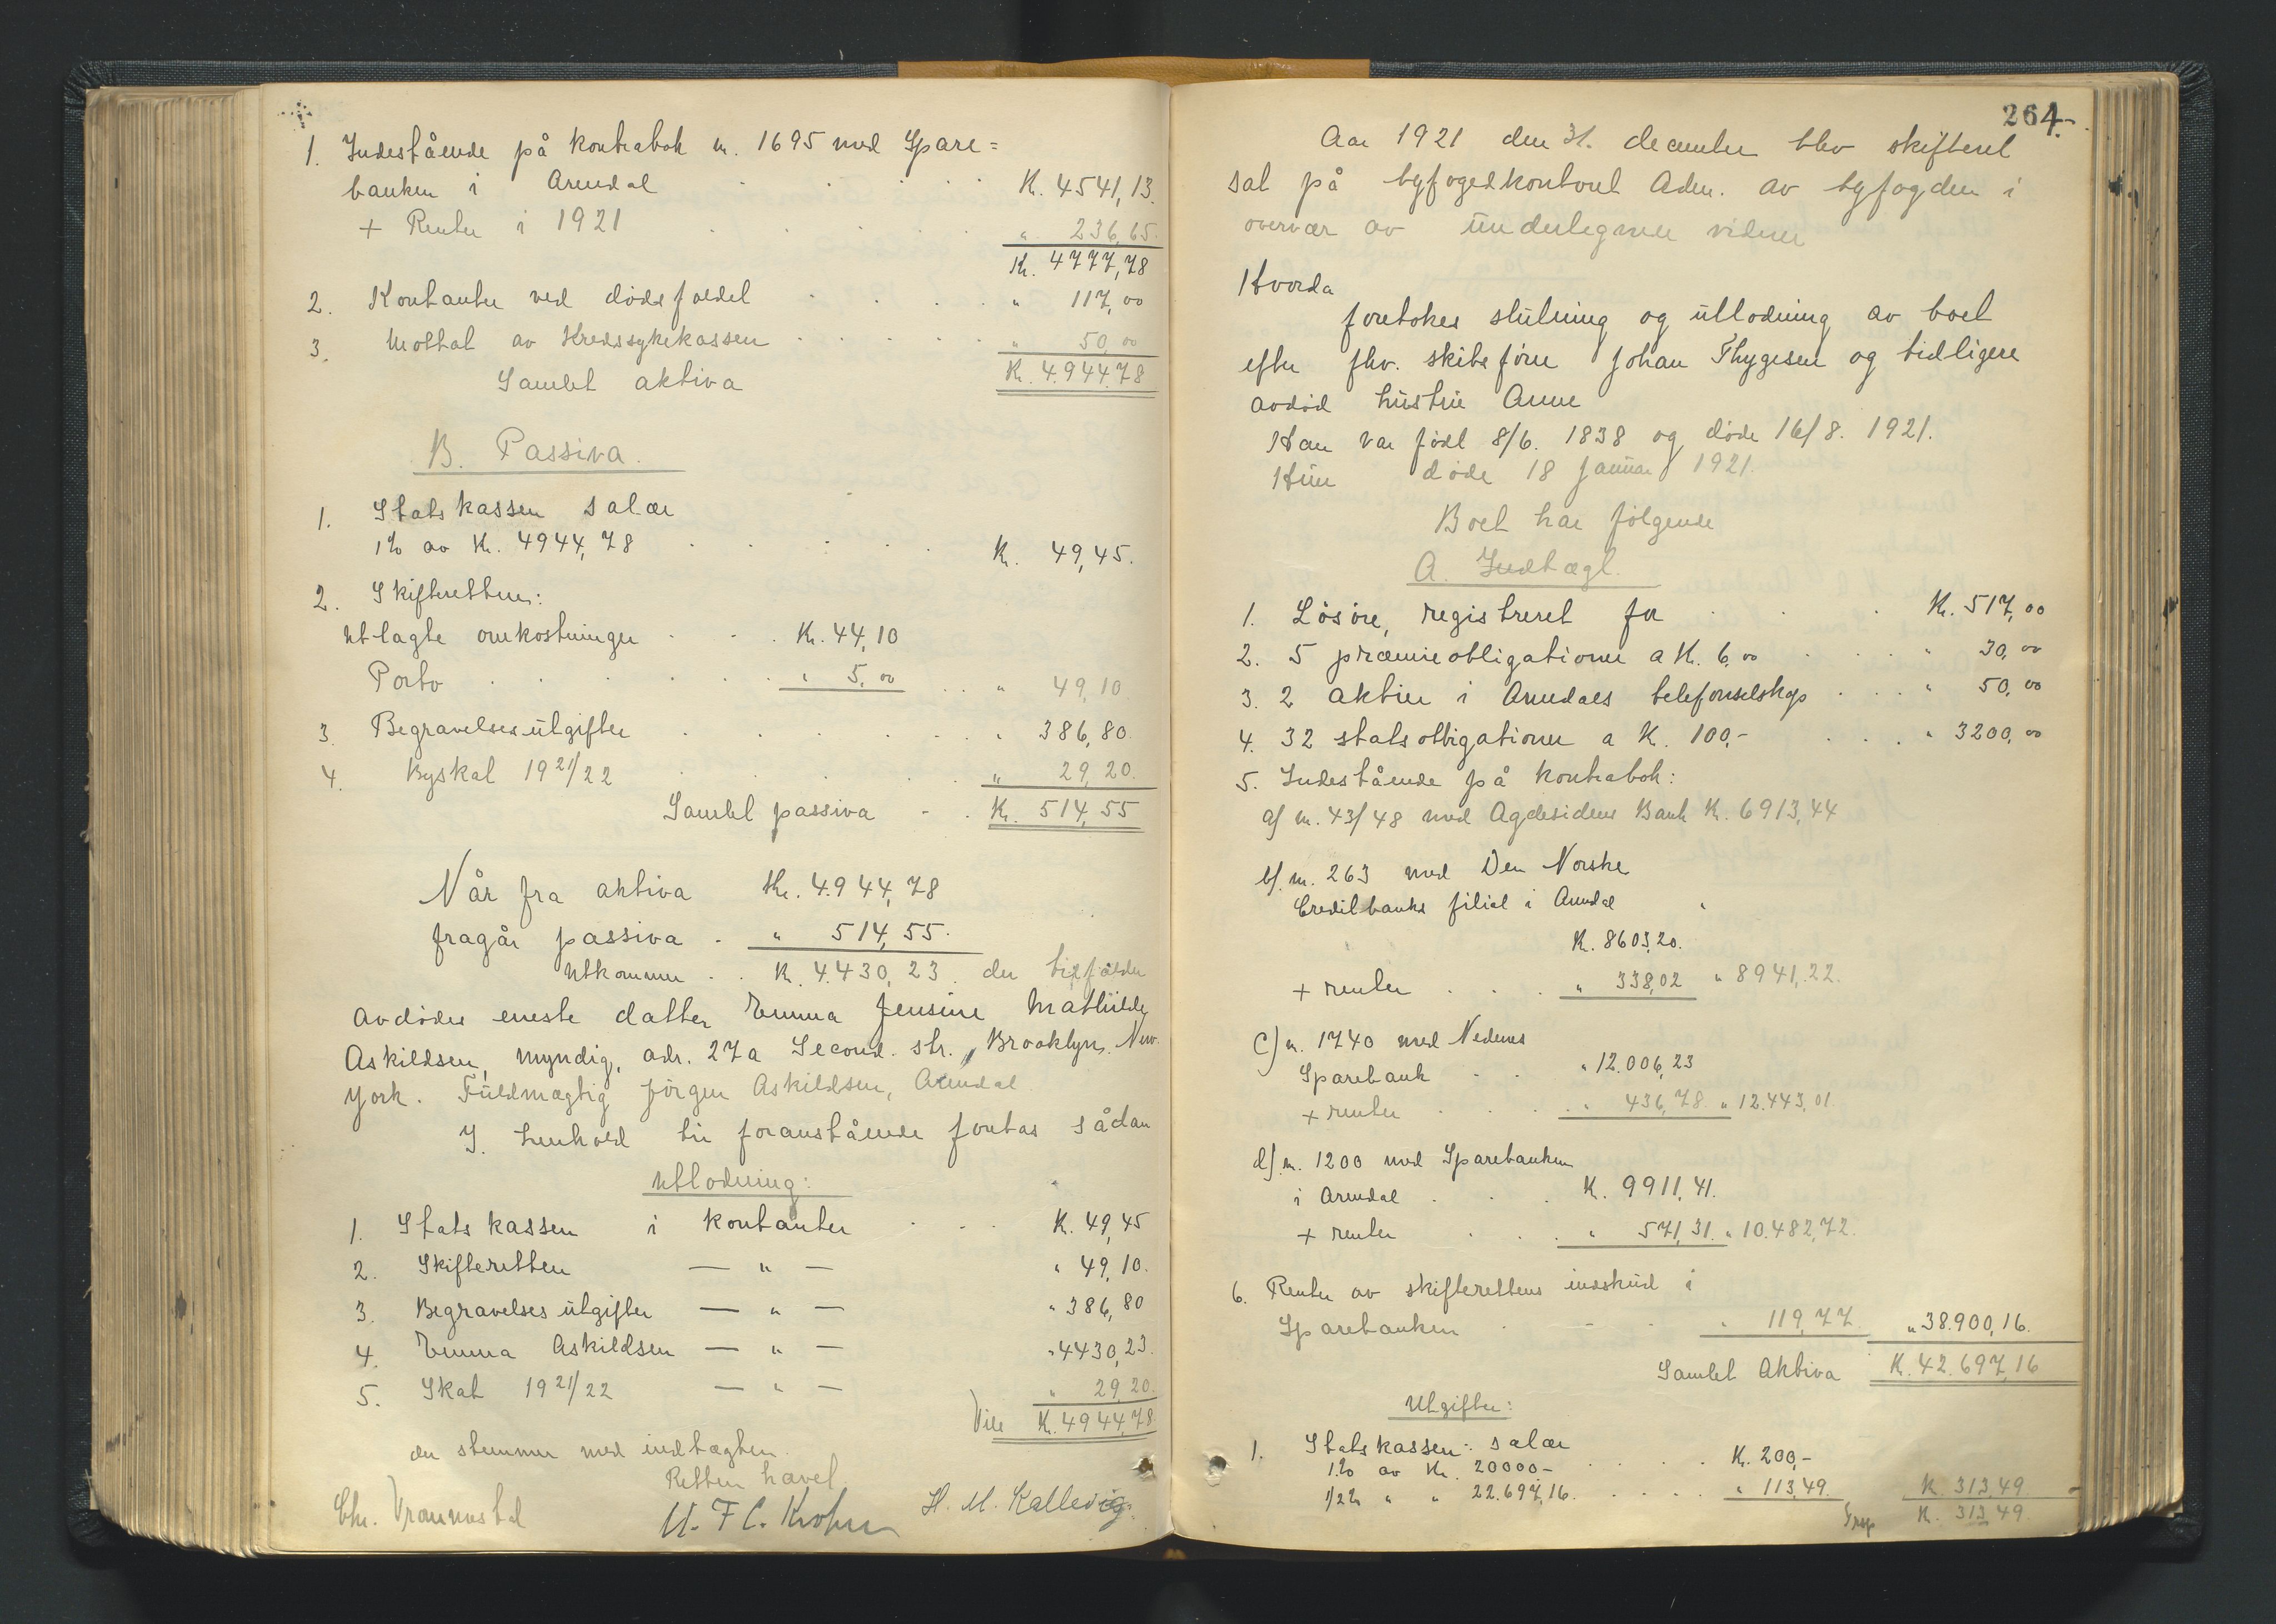 1. Indestående på kontrabok n. 1695 med Spare=
banken i Arendal . . . . . K. 4541,13.
+ Renter i 1921 . . . . . " 236,65.
Kr. 4777,78
2. Kontanter ved dødsfaldet . . . . " 117,00
3. Mottat av Kredssykekassen . . . . . " 50,00
Samlet aktiva K. 4.944,78
B. Passiva.
1. Statskassen salær
1% av Kr. 4944,78 . . . . . K. 49,45.
2. Skifteretten:
utlagte omkostninger . . . Kr. 44,10
Porto . . . . . . " 5,00 . . " 49,10
3. Begravelsesutgifter . . . . . . " 386,80.
4. Byskat 1921/22 . . . . . " 29,20.
Samlet passiva - . K. 514,55
Når fra aktiva Kr. 4.944,78
fragår passiva . " 514,55.
utkommer . . K. 4.430,23. der tilfalder
avdødes eneste datter Emma Jensine Mathilde
Askildsen, myndig, adr. 27a Second. str., Brooklyn, New.
York. Fuldmægtig Jörgen Askildsen, Arendal.
I henhold til foranstående foretas sådan
utlodning:
1. Statskassen i kontanter . . . K. 49,45
2. Skifteretten — " — " 49,10.
3. Begravelsesutgifter — " — " 386,80
4. Emma Askildsen — " — " 4430,23.
5. Skat 1921/22 — " — " 29,20.
K. 4944,78
der stemmer med indtægten.
Retten hævet.
Chr. H. M. Kallevig.
264.
Aar 1921 den 31. december blev skifteret
sat på byfogedkontoret Aden. av byfogden i
overvær av undertegnede vidner
Hvorda
foretokes slutning og utlodning av boet
efter fhv. skibsförer Johan Thygesen og tidligere
avdöd hustru Anne
Han var födt 8/6. 1838 og döde 16/8. 1921.
Hun döde 18 Januar 1921.
Boet har fölgende
A. Indtægt.
1. Lösöre, registreret for . . . Kr. 517,00
2. 5 præmieobligationer a K. 6,00 . . . " 30,00
3. 2 aktier i Arendals telefonselskap . . . " 50,00
4. 32 statsobligationer a K. 100,- . . . " 3200,00
5. Indestående på kontrabok:
a) n. 43/48 med Agdesidens Bank K. 6913,44
b). n. 263 med Den Norske
Creditbanks filial i Arendal "
K. 8603,20.
+ renter . . . " 338,02 " 8941,22.
c) n. 1740 med Nedenes
Sparebank . . " 12.006,23
+ renter . . . . " 436,78. " 12.443,01.
d). n. 1200 med Sparebanken
i Arendal . . . K. 9911,41.
+ renter . . . " 571,31. " 10.482,72.
6. Renter av skifterettens indskud i
Sparebanken . . . " 119,77. " 38.900,16.
Samlet Aktiva K. 42.697,16
Utgifter:
1. Statskassen: salær
1% av Kr. 20000- . . . . . K. 200,-
1/2% " " 22.697,16. . . . . " 113,49. K. 313,49.
Trsp K. 313,49.